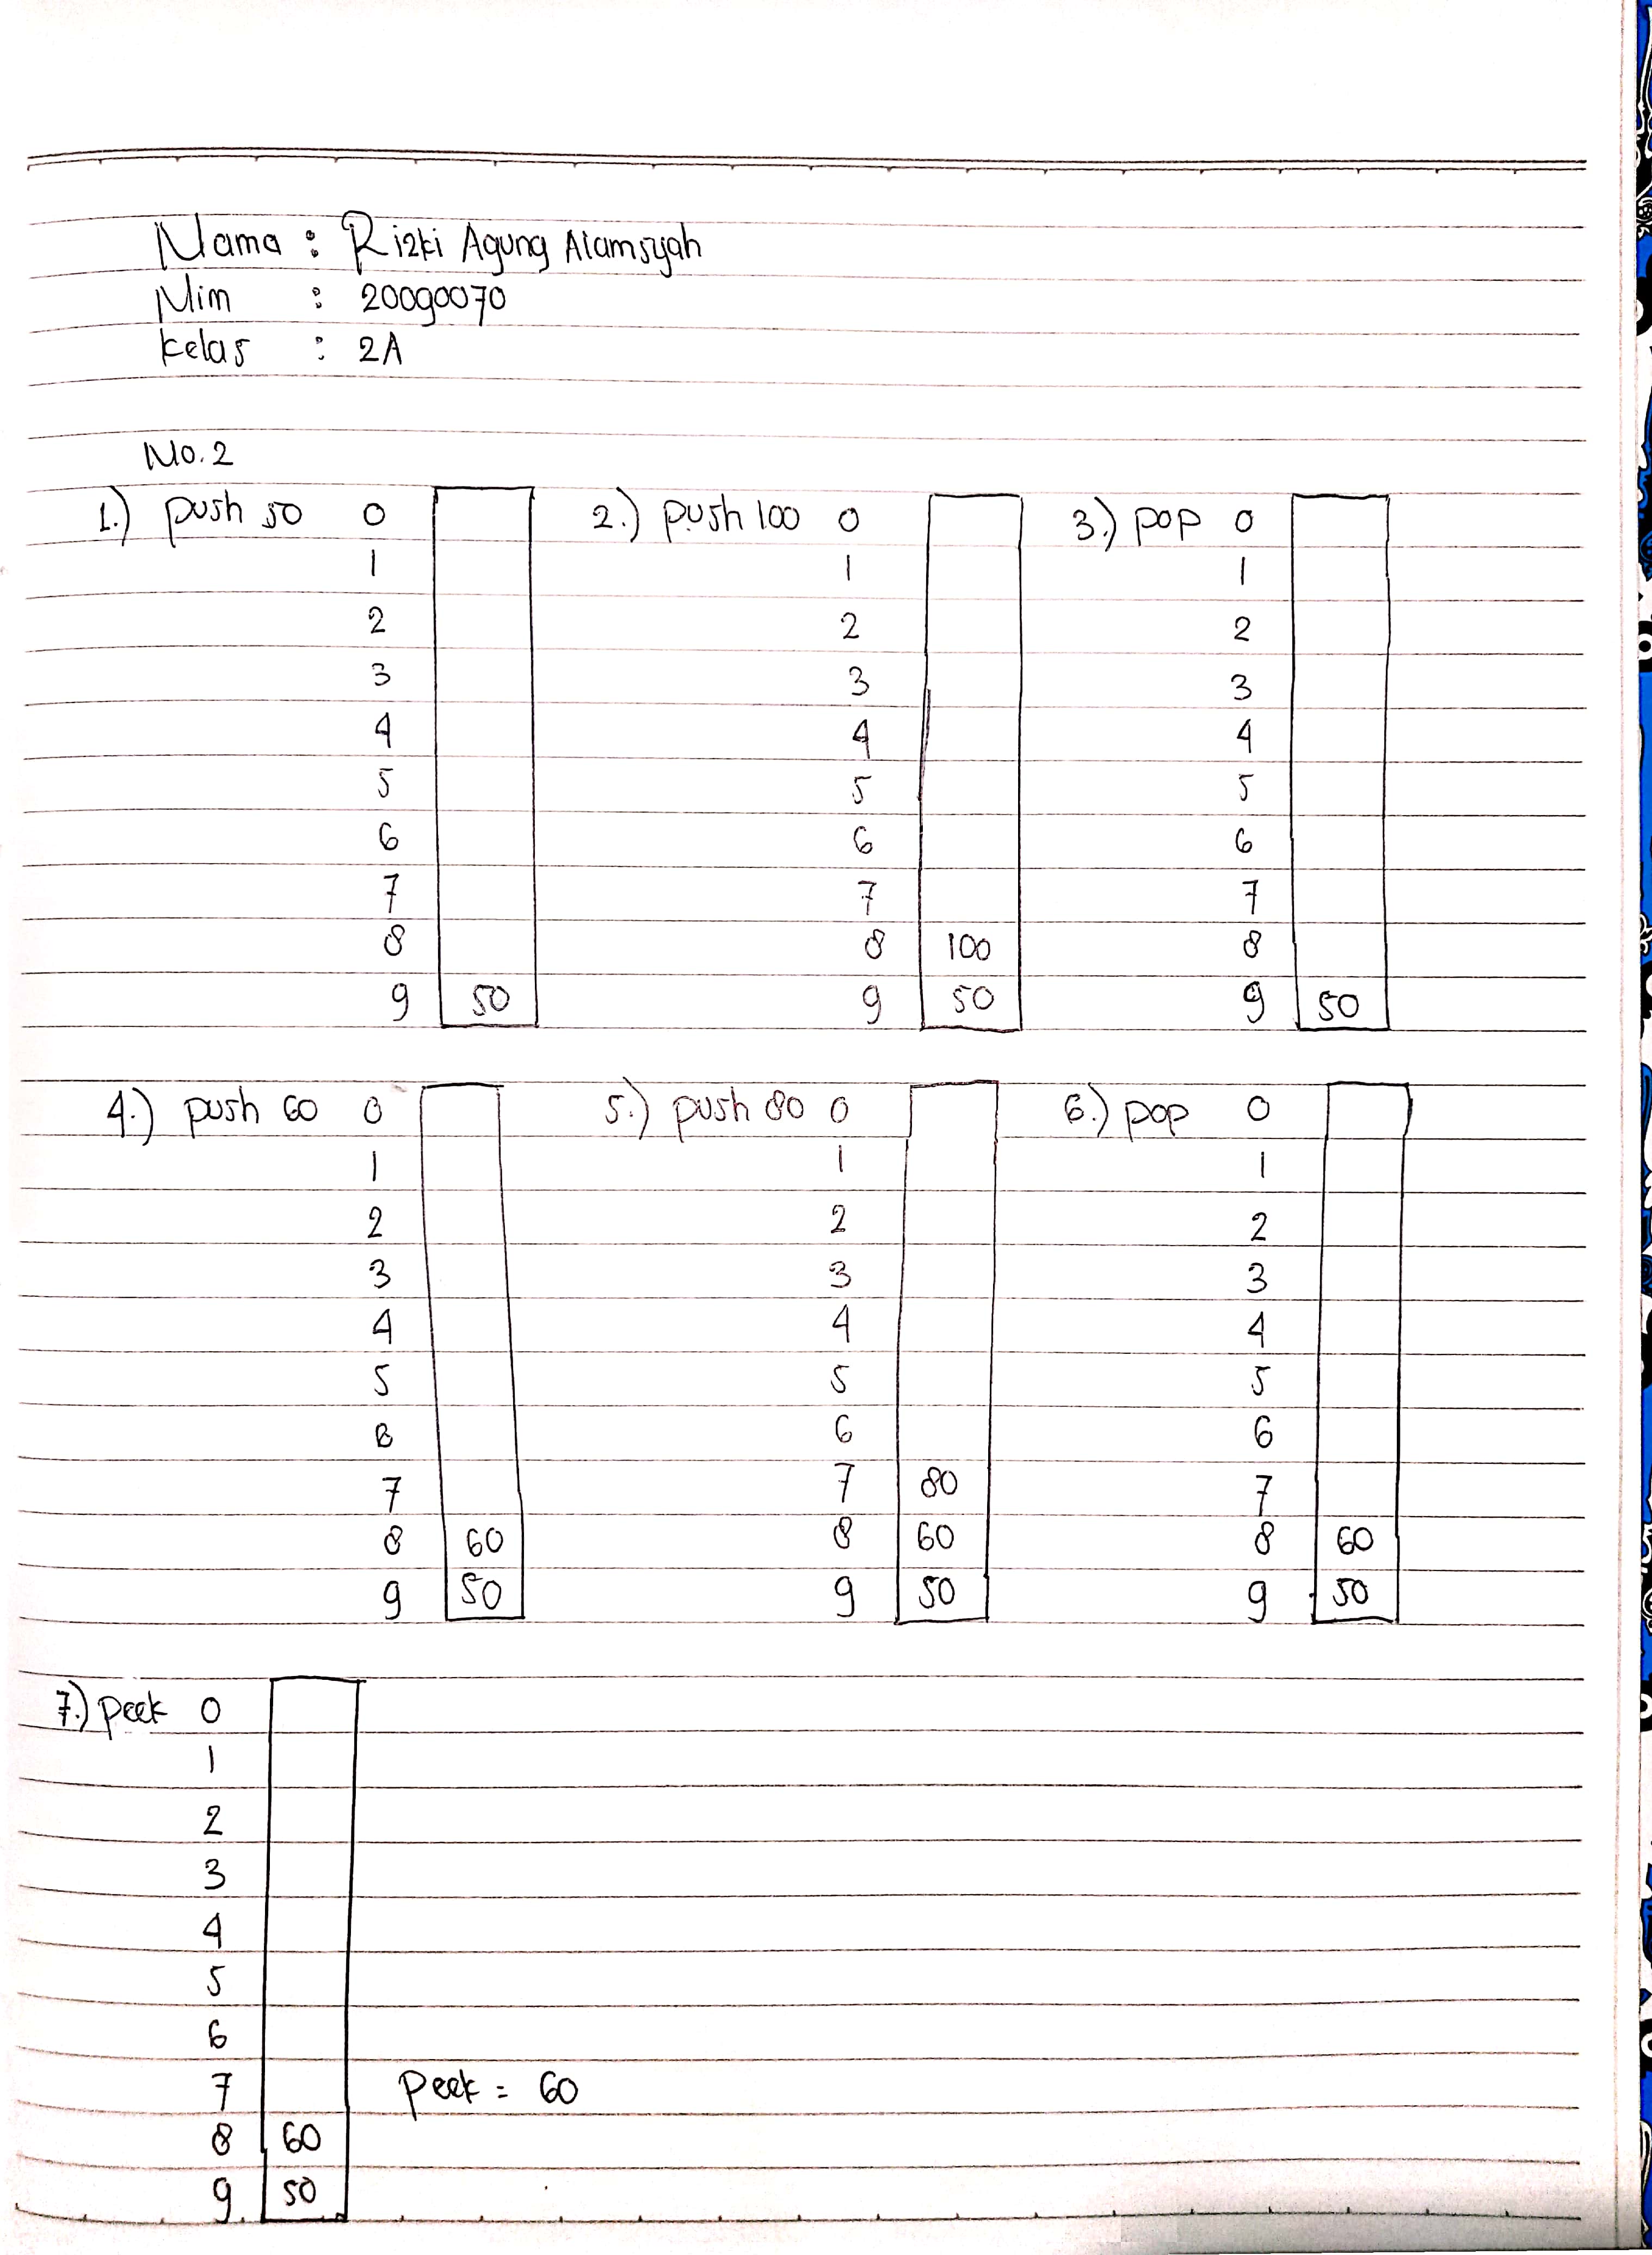 Nama : Rizki Agung Alamsyah
Nim : 20090070
Kelas : 2A
No. 2
1.) push 50 0
1
2
3
4
5
6
7
8
9 50
2.) push 100 0
1
2
3
4
5
6
7
8 100
9 50
3.) pop 0
1
2
3
4
5
6
7
8
9 50
4.) push 60 0
1
2
3
4
5
6
7
8 60
9 50
5.) push 80 0
1
2
3
4
5
6
7 80
8 60
9 50
6.) pop 0
1
2
3
4
5
6
7
8 60
9 50
7.) peek 0
1
2
3
4
5
6
7
8 60
9 50
Peek = 60